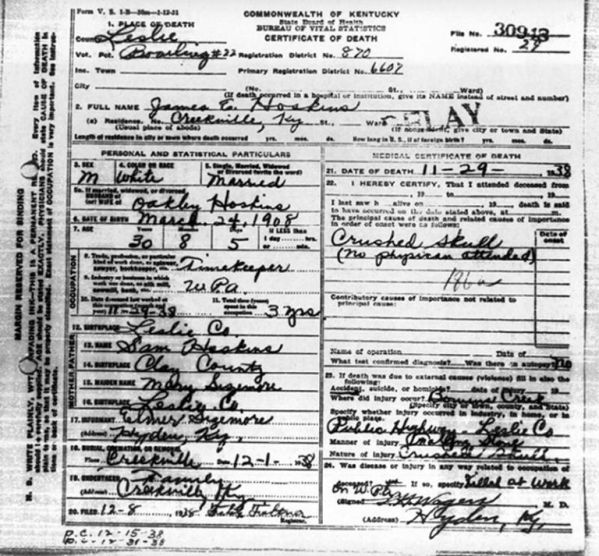 Form V. S. 1-B
COMMONWEALTH OF KENTUCKY
State Board of Health
BUREAU OF VITAL STATISTICS
CERTIFICATE OF DEATH
File No.
Registered No. 29
1. PLACE OF DEATH
County Leslie
Vot. Pct. Registration District No. 870
Inc. Town Primary Registration District No. 6607
City (No. St. Ward)
(If death occurred in a hospital or institution, give its NAME instead of street and number)
2. FULL NAME James E. Hoskins
DELAY
(a) Residence. No. Creekville, Ky. St. Ward
(Usual place of abode) (If nonresident, give city or town and State)
Length of residence in city or town where death occurred yrs. mos. ds. How long in U. S., if of foreign birth? yrs. mos. ds.
PERSONAL AND STATISTICAL PARTICULARS
3. SEX 4. COLOR OR RACE 5. Single, Married, Widowed or Divorced (write the word)
M White Married
5a. If married, widowed, or divorced
HUSBAND of
(or) WIFE of Oakley Hoskins
6. DATE OF BIRTH March 24, 1908
7. AGE If LESS than
30 8 5 1 day hrs.
or min.
OCCUPATION
8. Trade, profession, or particular kind of work done, as spinner, sawyer, bookkeeper, etc. Timekeeper
9. Industry or business in which work was done, as silk mill, sawmill, bank, etc. WPA
10. Date deceased last worked at this occupation (month and year) 11-29-38
11. Total time (years) spent in this occupation 3 yrs
12. BIRTHPLACE Leslie Co
13. NAME Sam Hoskins
14. BIRTHPLACE Clay County
15. MAIDEN NAME Mary Sizemore
16. BIRTHPLACE Leslie Co.
17. INFORMANT Elmer Sizemore
(Address) Hyden, Ky.
18. BURIAL, CREMATION, OR REMOVAL
Place Creekville 12-1-38
19. UNDERTAKER Family
(Address) Creekville, Ky
20. FILED 12-8 1938
Registrar.
P.C. 12-15-38
MEDICAL CERTIFICATE OF DEATH
21. DATE OF DEATH 11-29- 38
22. I HEREBY CERTIFY, That I attended deceased from
, 19 , to , 19
I last saw h alive on , 19 death is said
to have occurred on the date stated above, at m.
The principal cause of death and related causes of importance
in order of onset were as follows:
Date of onset
Crushed Skull
(No physician attended)
Contributory causes of importance not related to
principal cause:
Name of operation Date of
What test confirmed diagnosis? Was there an autopsy? no
23. If death was due to external causes (violence) fill in also the
following:
Accident, suicide, or homicide? Date of injury 19
Where did injury occur? Creek
(Specify city or town, county, and State)
Specify whether injury occurred in industry, in home, or in
public place.
Public Highway - Leslie Co
Manner of injury
Nature of injury Crushed Skull
24. Was disease or injury in any way related to occupation of
deceased? If so, specify Killed at Work
on WPA
(Signed) M. D.
(Address) Hyden, Ky.
MARGIN RESERVED FOR BINDING